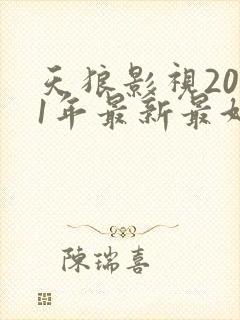 天狼影視20
1年最新最
陳瑞喜